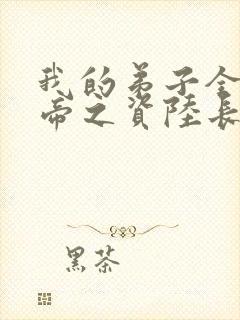 我的弟子全
帝之資陸長
黑茶